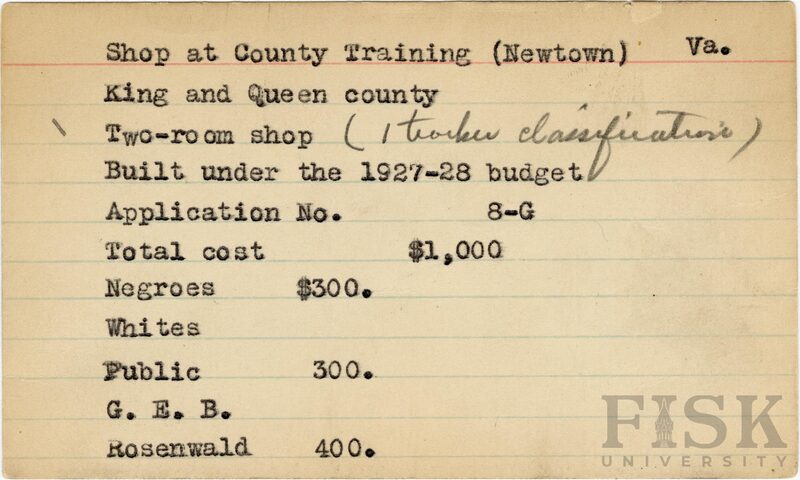 Shop at County Training (Newtown) Va.
King and Queen county
Two-room shop (1 teacher classification)
Built under the 1927-28 budget
Application No. 8-G
Total cost $1,000
Negroes $300.
Whites
Public 300.
G. E. B.
Rosenwald 400.
FISK
UNIVERSITY